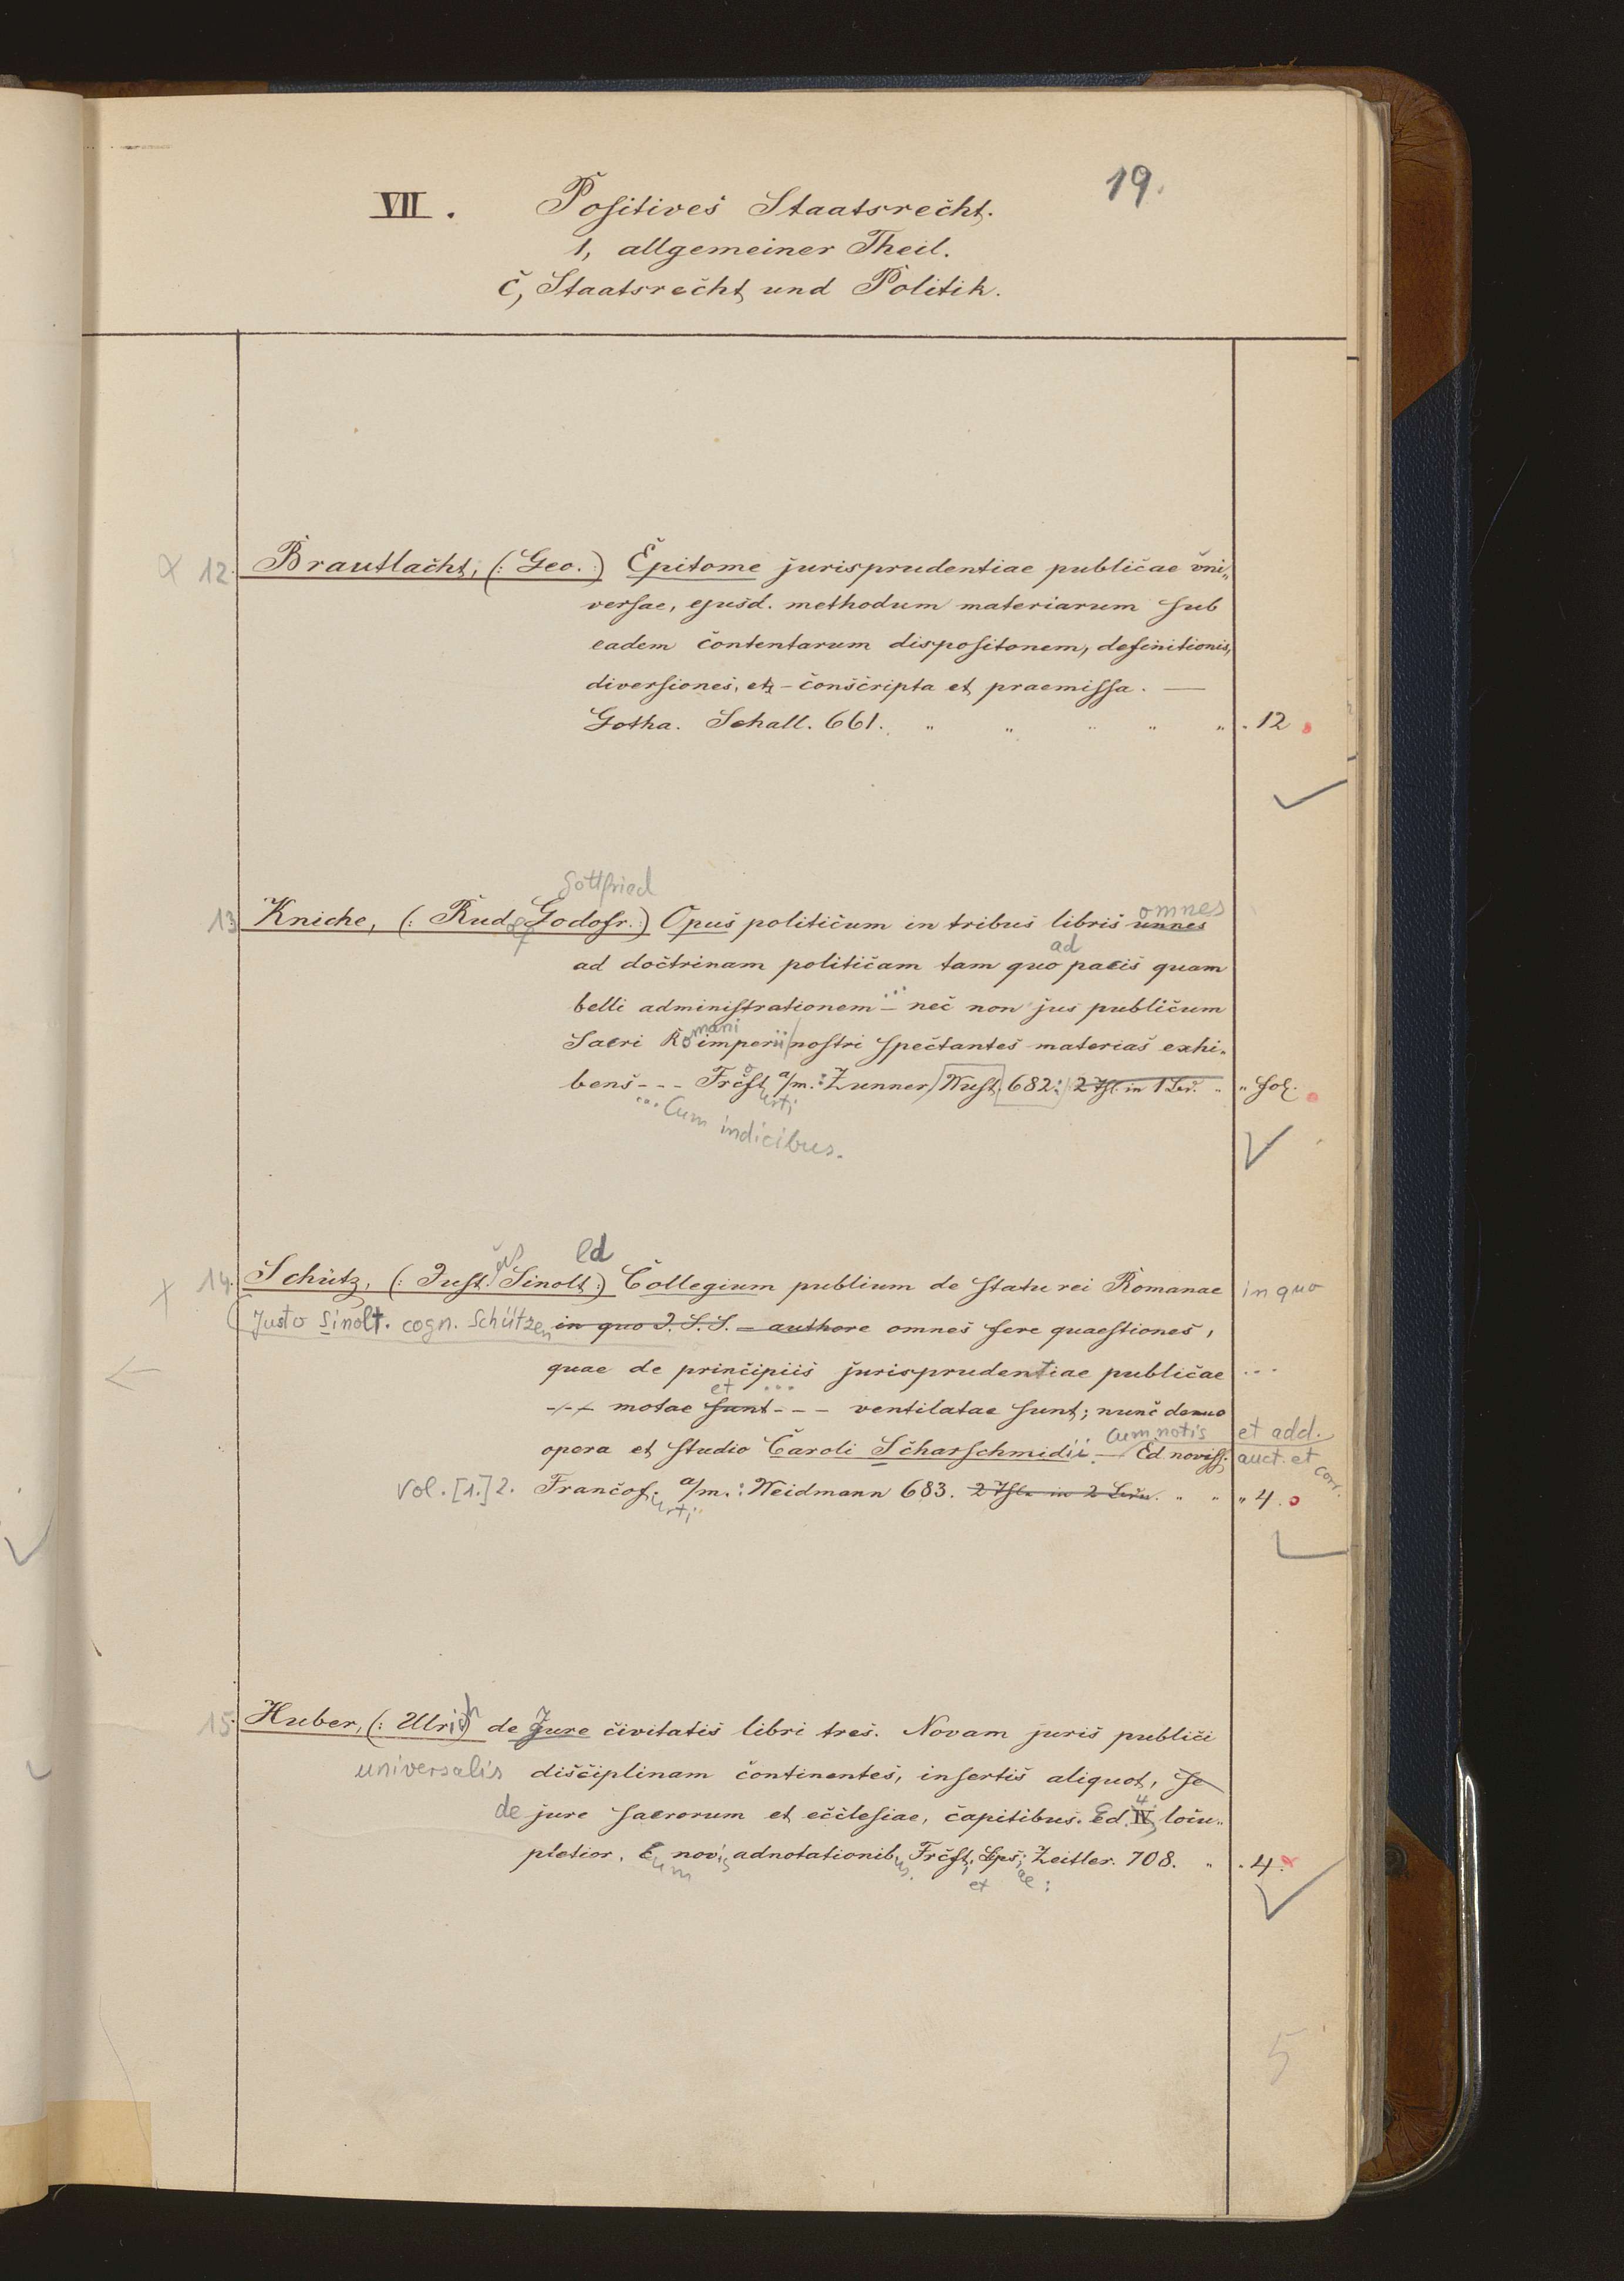 19.
VII. Positives Staatsrecht.
1, allgemeiner Theil.
c, Staatsrecht und Politik.
12. Brautlacht, (: Geo. :) Epitome jurisprudentiae publicae uni„
versae, ejusd. methodum materiarum sub
eadem contentarum dispositonem, definitionis,
diversiones, etz - conscripta et praemissa. —
Gotha. Schall. 661. „ „ „ „ „ . 12
Gottfried
13 Kniche, (: Rud. Godofr. :) Opus politicum in tribus libris unnes omnes
ad doctrinam politicam tam quo ad pacis quam
belli administrationem ... – nec non jus publicum
Sacri Romani imperii nostri spectantes materias exhi„
bens - - - Frcft a/m.: Zunner Wust. 682: 2 Thl. in 1 Bd. „ „ fol.
urti
... Cum indicibus.
ed
14. Schütz, (: Just. Sinolt :) Collegium publium de statu rei Romanae in quo
(Justo Sinolt. cogn. Schützen in quo J. S. S. – authore omnes fere quaestiones,
quae de principiis jurisprudentiae publicae ...
motae sunt et ... - - - ventilatae sunt; nunc denuo
opera et studio Caroli Scharschmidii. – cum notis et add.
Ed noviss. auct. et corr.
Vol. [1.] 2. Francof. a/m.: Weidmann 683. 2 Thle in 2 Bdn. „ „ „ 4.
urti
15. Huber, (: Ulrich de Jure civitatis libri tres. Novam juris publici
universalis disciplinam continentes, insertis aliquot, se
de jure sacrorum et ecclesiae, capitibus. Ed. IV 4. locu„
pletior. C novis adnotationib, Frcft, Lps; Zeitler. 708. „ . 4.
um us. et ae :
5